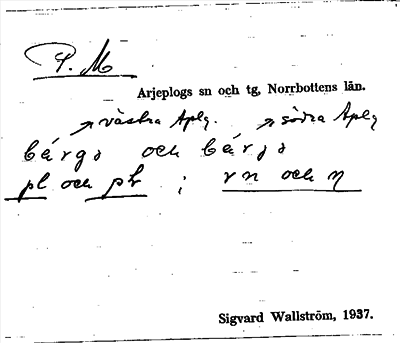 P. M
Arjeplogs sn och tg, Norrbottens län.
↗ västra Aplg. ↗ södra Aplg
bárgo och bárjo
pl och pł ; rn och ŋ
Sigvard Wallström, 1937.